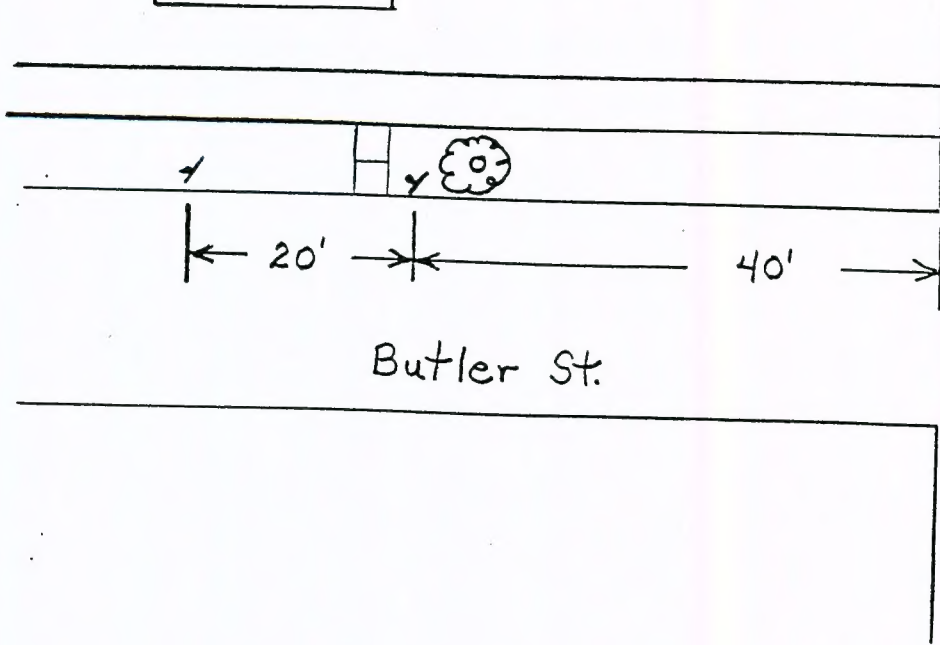 20' 40'
Butler St.